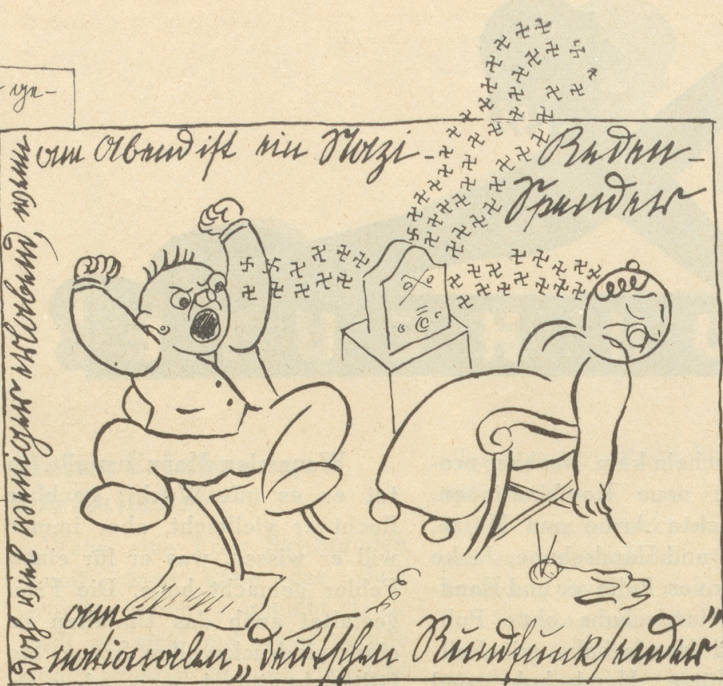 ge-
Doch wird weniger erlabend, wenn
am Abend ist ein Nazi-
Reden-
Spender
am
nationalen „deutschen Rundfunksender"